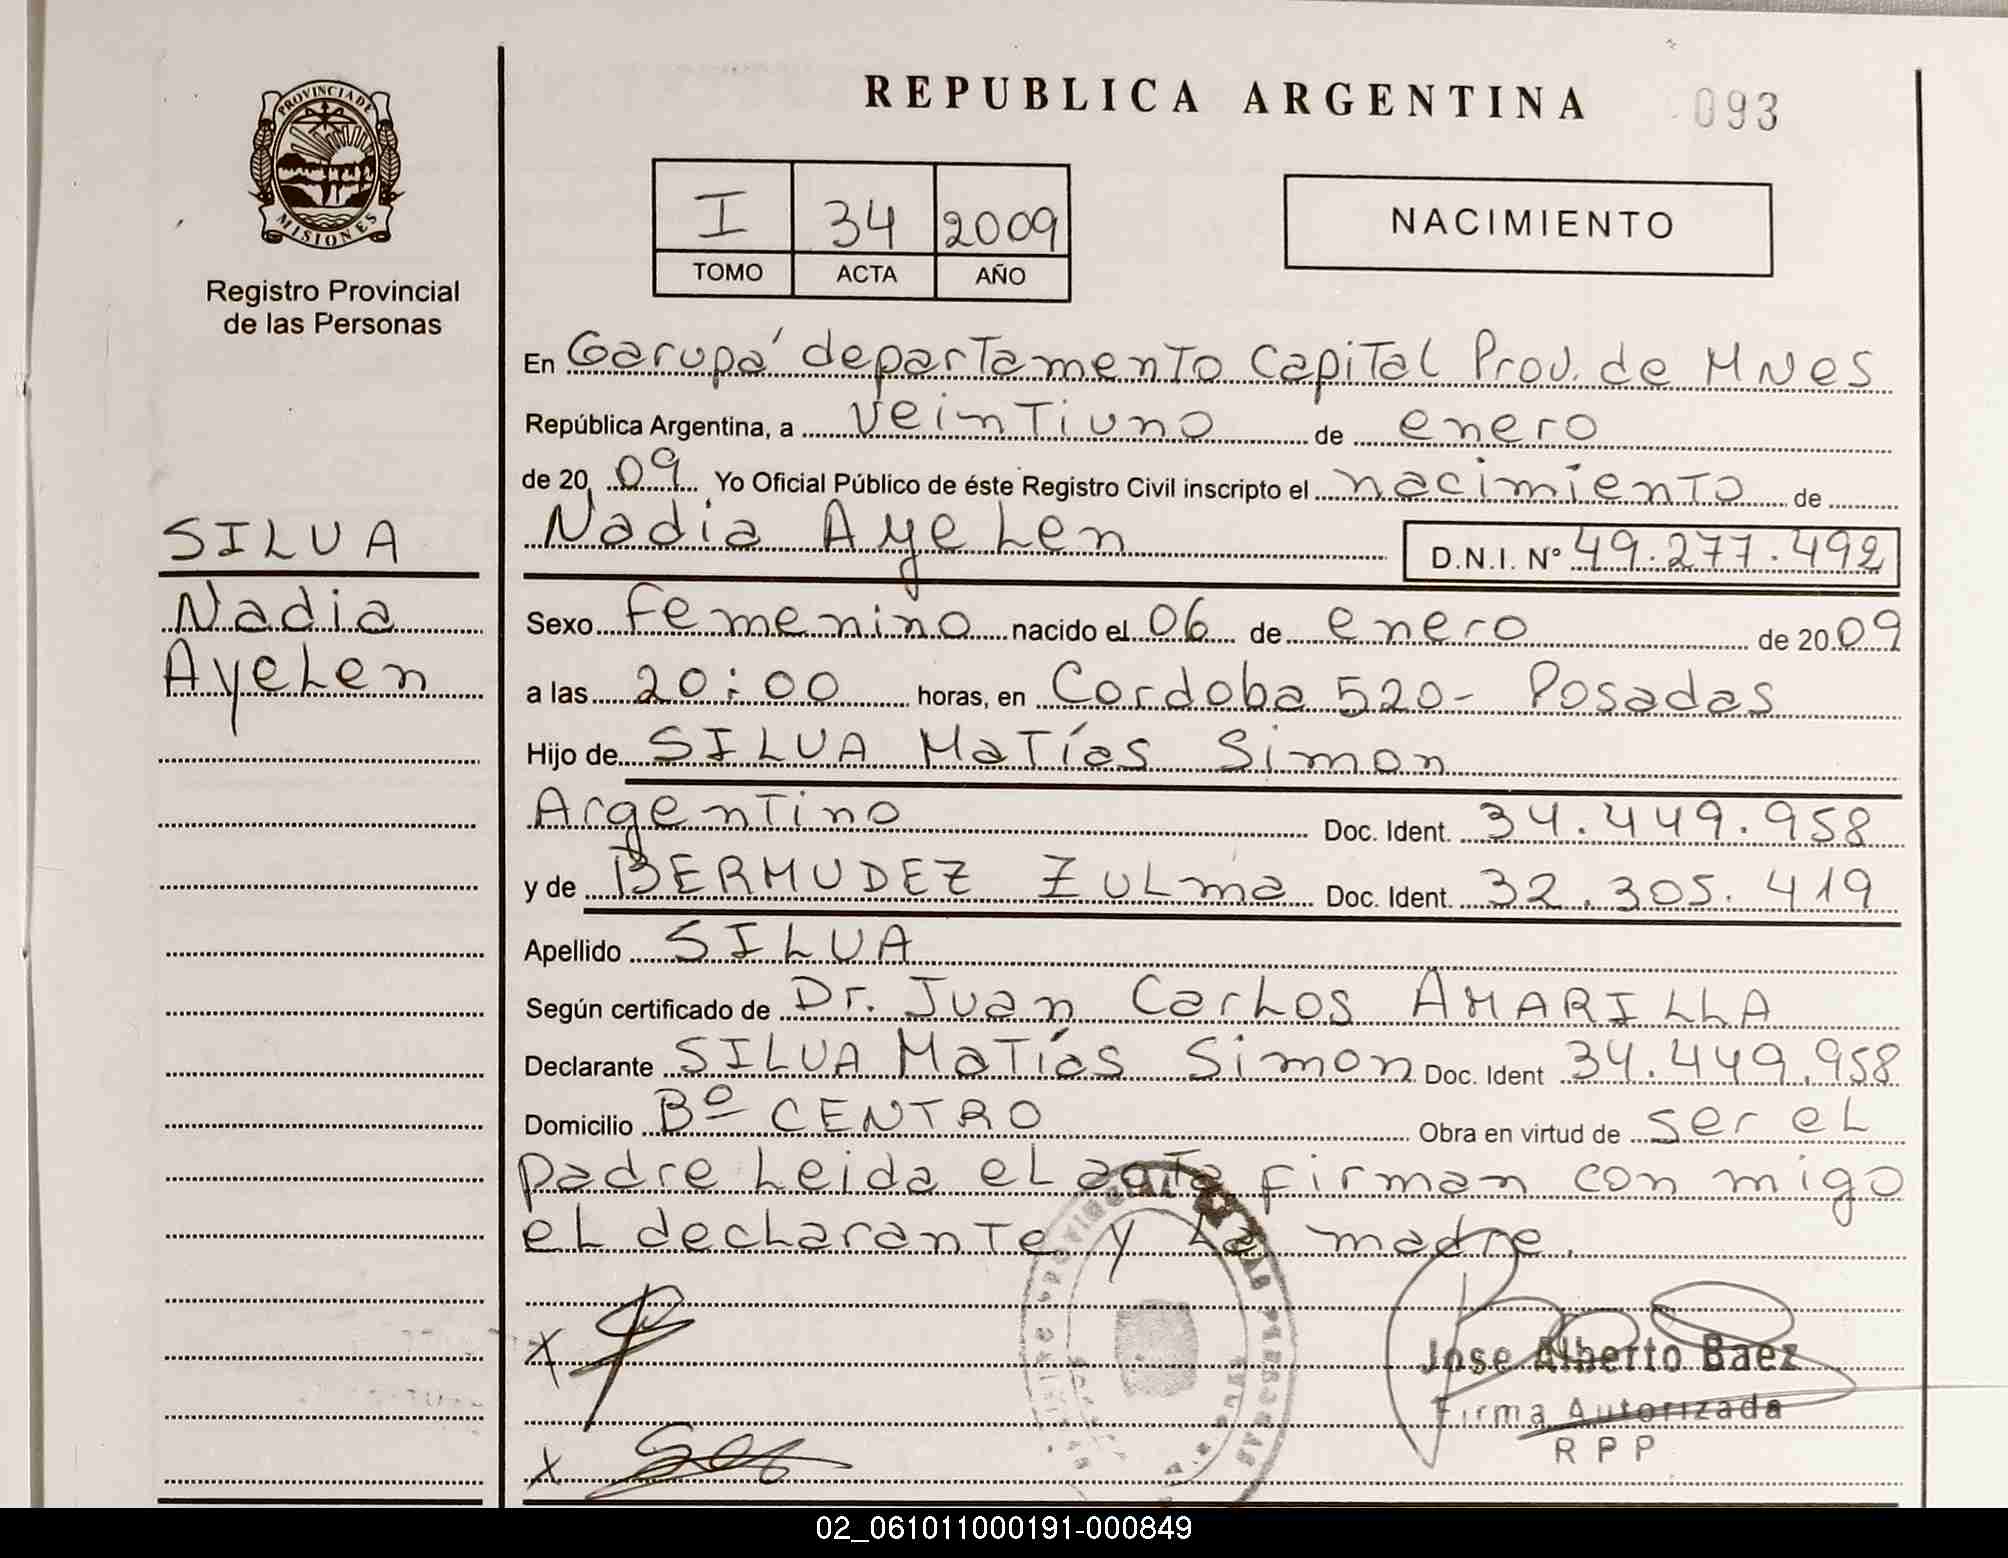 PROVINCIA DE
MISIONES
Registro Provincial
de las Personas
SILVA
Nadia
Ayelen
REPUBLICA ARGENTINA 093
I 34 2009
TOMO ACTA AÑO
NACIMIENTO
En Garupá departamento Capital Prov. de MNes
República Argentina, a veintiuno de enero
de 2009 Yo Oficial Público de éste Registro Civil inscripto el nacimiento de
Nadia Ayelen D.N.I. Nº 49.277.492
Sexo Femenino nacido el 06 de enero de 2009
a las 20:00 horas, en Cordoba 520- Posadas
Hijo de SILVA Matías Simon
Argentino Doc. Ident. 34.449.958
y de BERMUDEZ Zulma Doc. Ident. 32.305.419
Apellido SILVA
Según certificado de Dr. Juan Carlos AMARILLA
Declarante SILVA Matías Simon Doc. Ident 34.449.958
Domicilio Bº CENTRO Obra en virtud de ser el
padre Leida el acta firman con migo
el declarante y La madre.
X
Jose Alberto Baez
Firma Autorizada
RPP
X
02_061011000191-000849